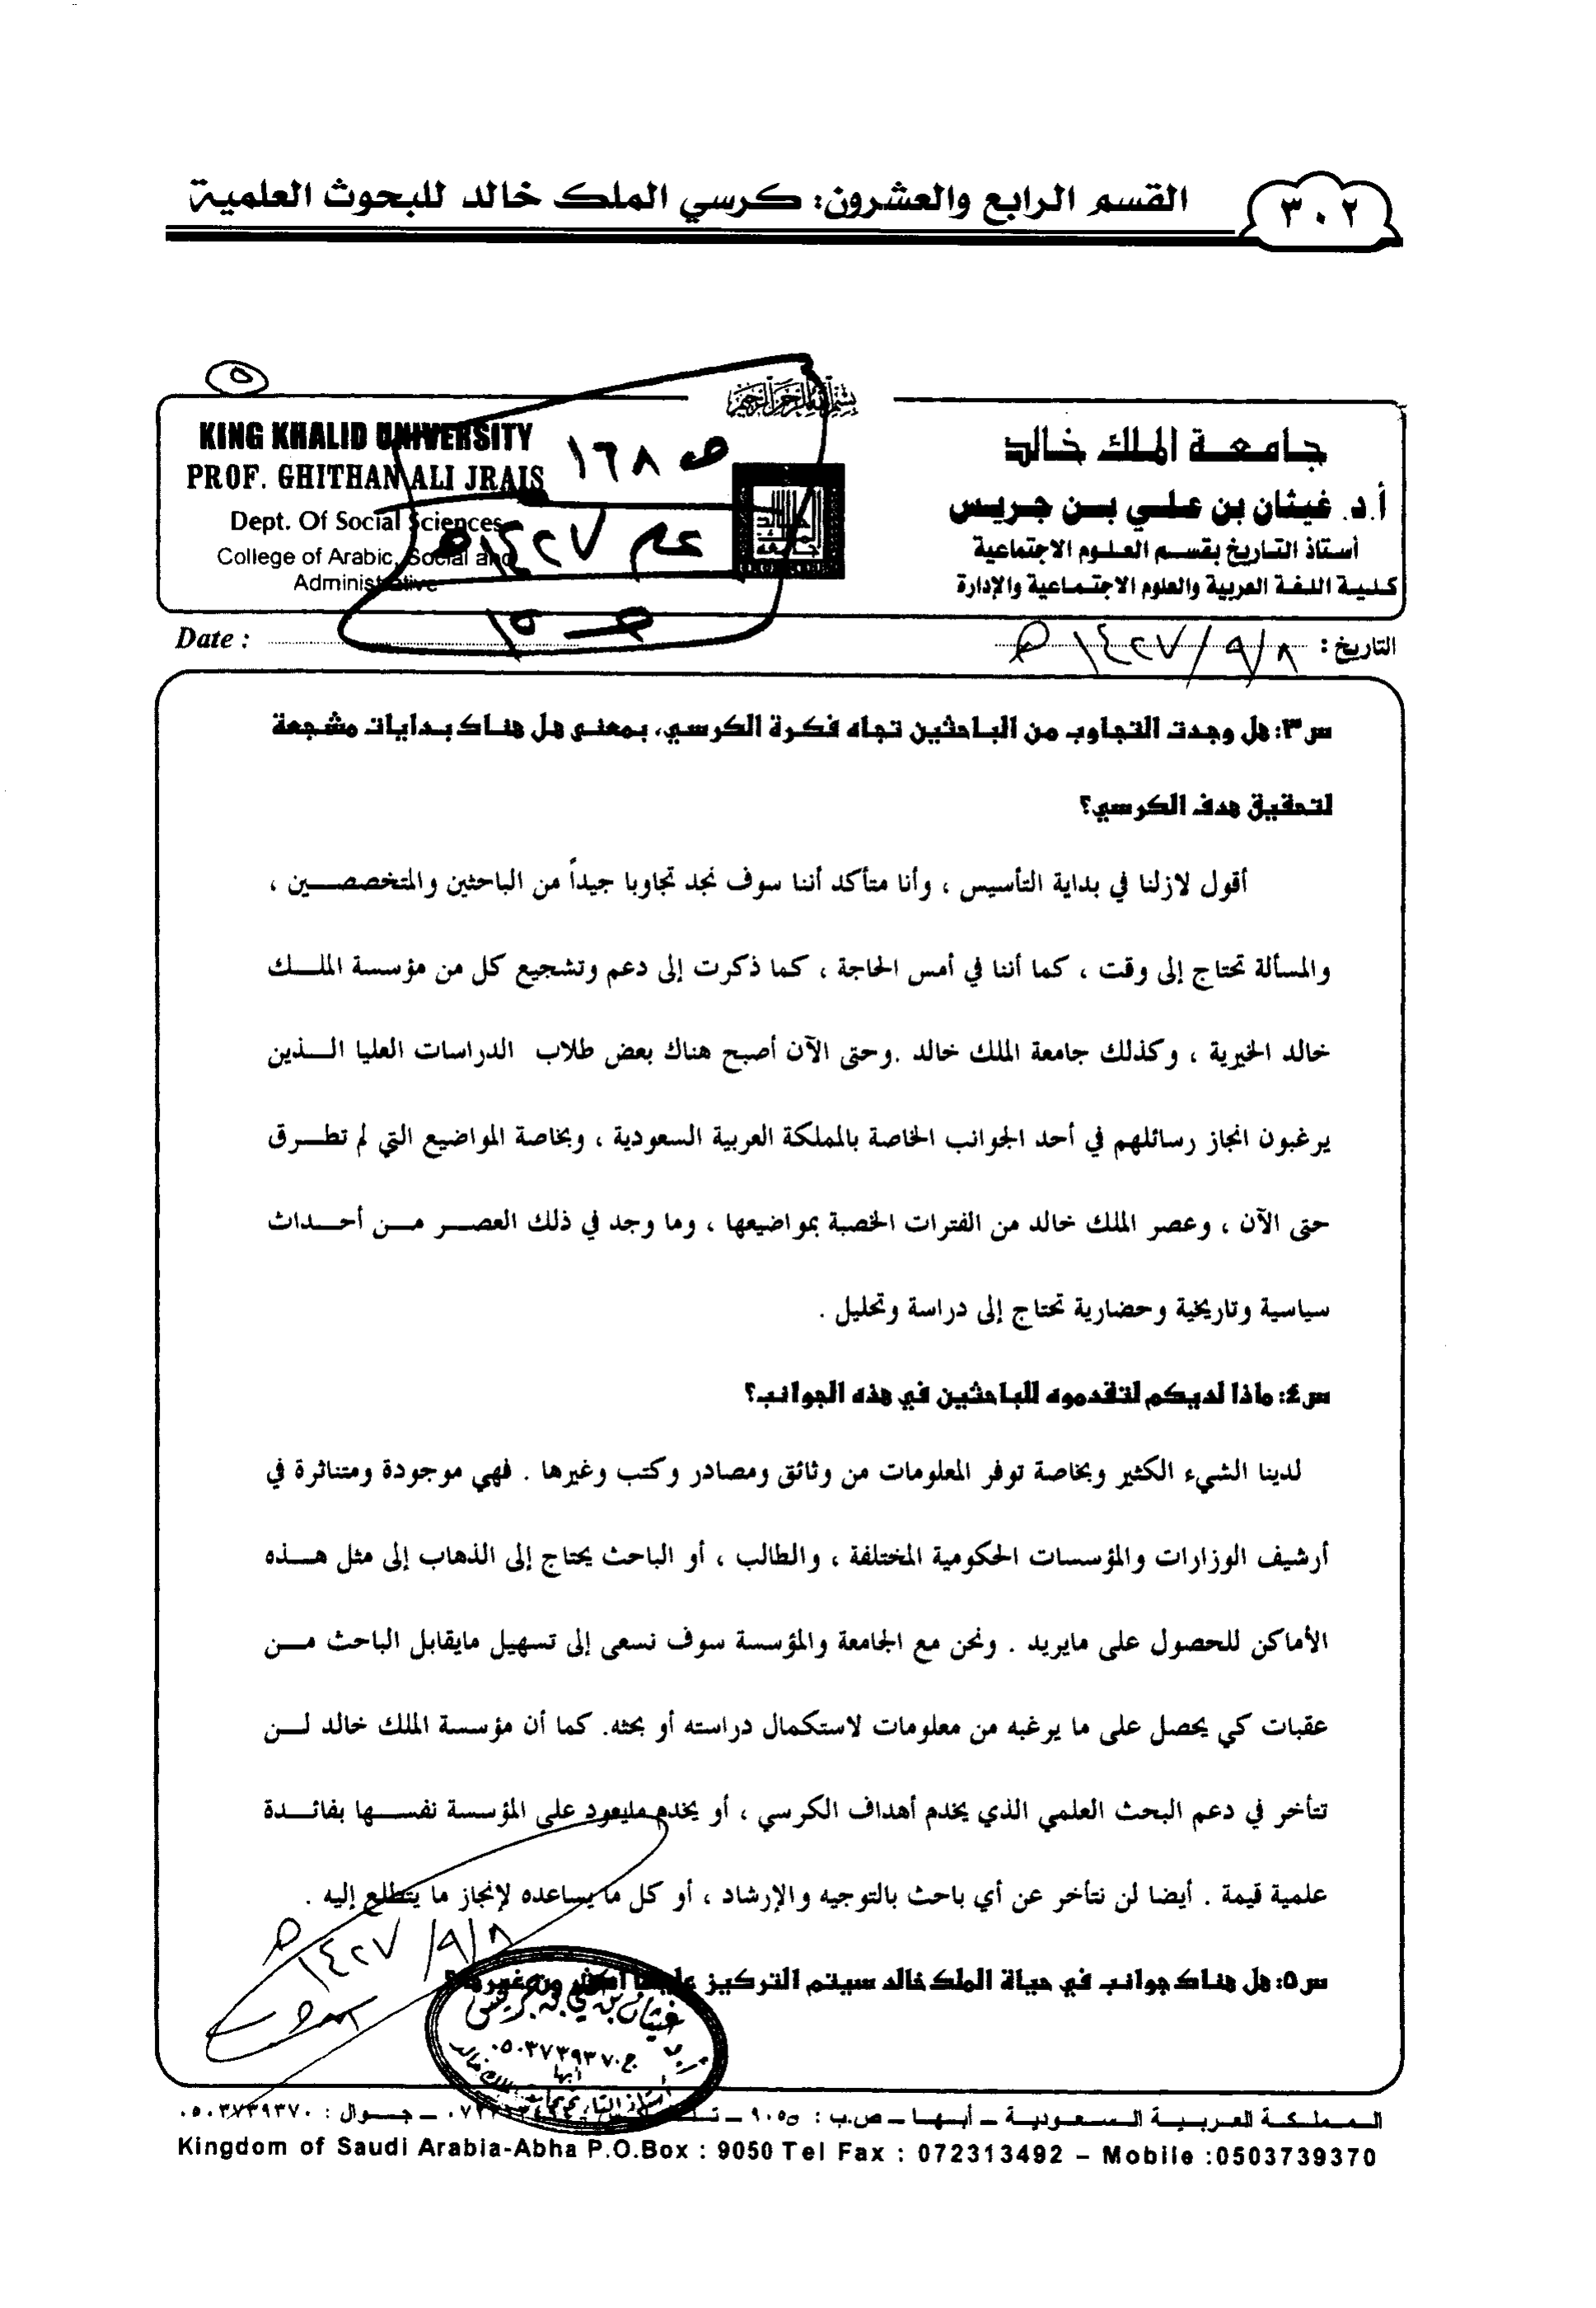 القسم الرابع والعشرون: كرسي الملك خالد للبحوث العلمية
٣٠٢
٥
بسم الله الرحمن الرحيم
جامعة الملك خالد
أ.د. غيثان بن علي بن جريس
أستاذ التاريخ بقسم العلوم الاجتماعية
كلية اللغة العربية والعلوم الاجتماعية والإدارة
KING KHALID UNIVERSITY
PROF. GHITHAN ALI JRAIS
Dept. Of Social Sciences
College of Arabic, Social and
Administrative
ص ١٦٨
عام ١٤٢٧هـ
ص ١٥
التاريخ : ١٤٢٧/٩/٨ هـ
Date :
س٣: هل وجدت التجاوب من الباحثين تجاه فكرة الكرسي، بمعنى هل هناك بدايات مشجعة
لتحقيق هدف الكرسي؟
أقول لازلنا في بداية التأسيس ، وأنا متأكد أننا سوف نجد تجاوبا جيداً من الباحثين والمتخصصين ،
والمسألة تحتاج إلى وقت ، كما أننا في أمس الحاجة ، كما ذكرت إلى دعم وتشجيع كل من مؤسسة الملك
خالد الخيرية ، وكذلك جامعة الملك خالد .وحتى الآن أصبح هناك بعض طلاب الدراسات العليا الذين
يرغبون انجاز رسائلهم في أحد الجوانب الخاصة بالمملكة العربية السعودية ، وبخاصة المواضيع التي لم تطرق
حتى الآن ، وعصر الملك خالد من الفترات الخصبة بمواضيعها ، وما وجد في ذلك العصر من أحداث
سياسية وتاريخية وحضارية تحتاج إلى دراسة وتحليل .
س٤: ماذا لديكم لتقدموه للباحثين في هذه الجوانب؟
لدينا الشيء الكثير وبخاصة توفر المعلومات من وثائق ومصادر وكتب وغيرها . فهي موجودة ومتناثرة في
أرشيف الوزارات والمؤسسات الحكومية المختلفة ، والطالب ، أو الباحث يحتاج إلى الذهاب إلى مثل هذه
الأماكن للحصول على مايريد . ونحن مع الجامعة والمؤسسة سوف نسعى إلى تسهيل مايقابل الباحث من
عقبات كي يحصل على ما يرغبه من معلومات لاستكمال دراسته أو بحثه. كما أن مؤسسة الملك خالد لن
تتأخر في دعم البحث العلمي الذي يخدم أهداف الكرسي ، أو يخدم مايعود على المؤسسة نفسها بفائدة
علمية قيمة . أيضا لن نتأخر عن أي باحث بالتوجيه والإرشاد ، أو كل ما يساعده لإنجاز ما يتطلع إليه .
١٤٢٧/٩/٨ هـ
س٥: هل هناك جوانب في حياة الملك خالد سيتم التركيز عليها أكثر من غيرها؟
غيثان بن علي بن جريس
ج.٠٥٠٣٧٣٩٣٧٠
أبها
المملكة العربية السعودية – أبها – ص.ب : ٩٠٥٠ – – جوال : ٠٥٠٣٧٣٩٣٧٠
Kingdom of Saudi Arabia-Abha P.O.Box : 9050 Tel Fax : 072313492 – Mobile :0503739370